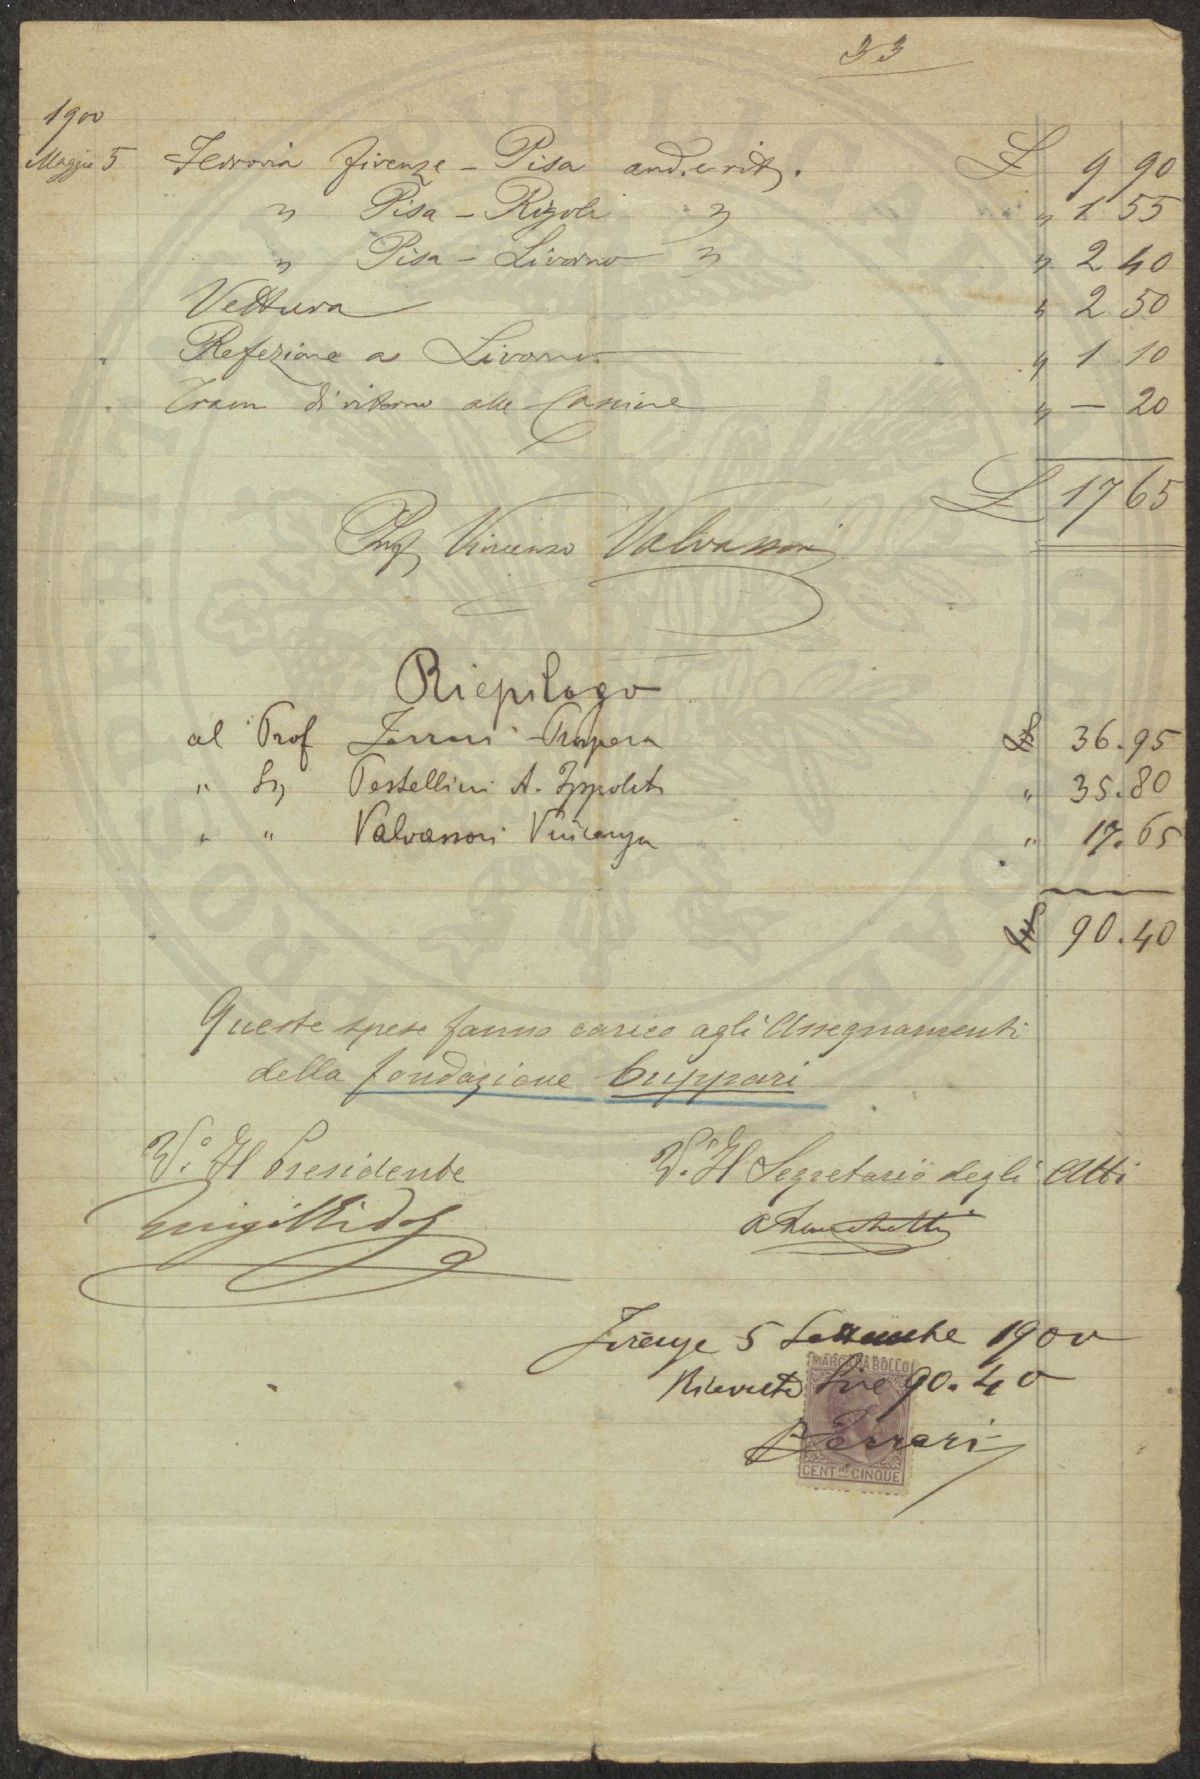 33
1900
Maggio 5 Ferrovia Firenze - Pisa and. e rit. £ 9 90
" Pisa - Rigoli " " 1 55
" Pisa - Livorno " " 2 40
Vettura " 2 50
Refezione a Livorno " 1 10
Tram di ritorno alle Cascine " — 20
£ 17 65
Prof Vincenzo Valvassori
Riepilogo
al Prof Ferrari Prospero £ 36.95
" Sig Pestellini A. Ippolito " 35.80
" " Valvassori Vincenzo " 17.65
£ 90.40
Queste spese fanno carico agli Assegnamenti
della fondazione Cuppari
V.° Il Presidente
V.° Il Segretario degli Atti
Firenze 5 Settembre 1900
MARCA DA BOLLO
Ricevute Lire 90.40
P Ferrari
CENT.MI CINQUE